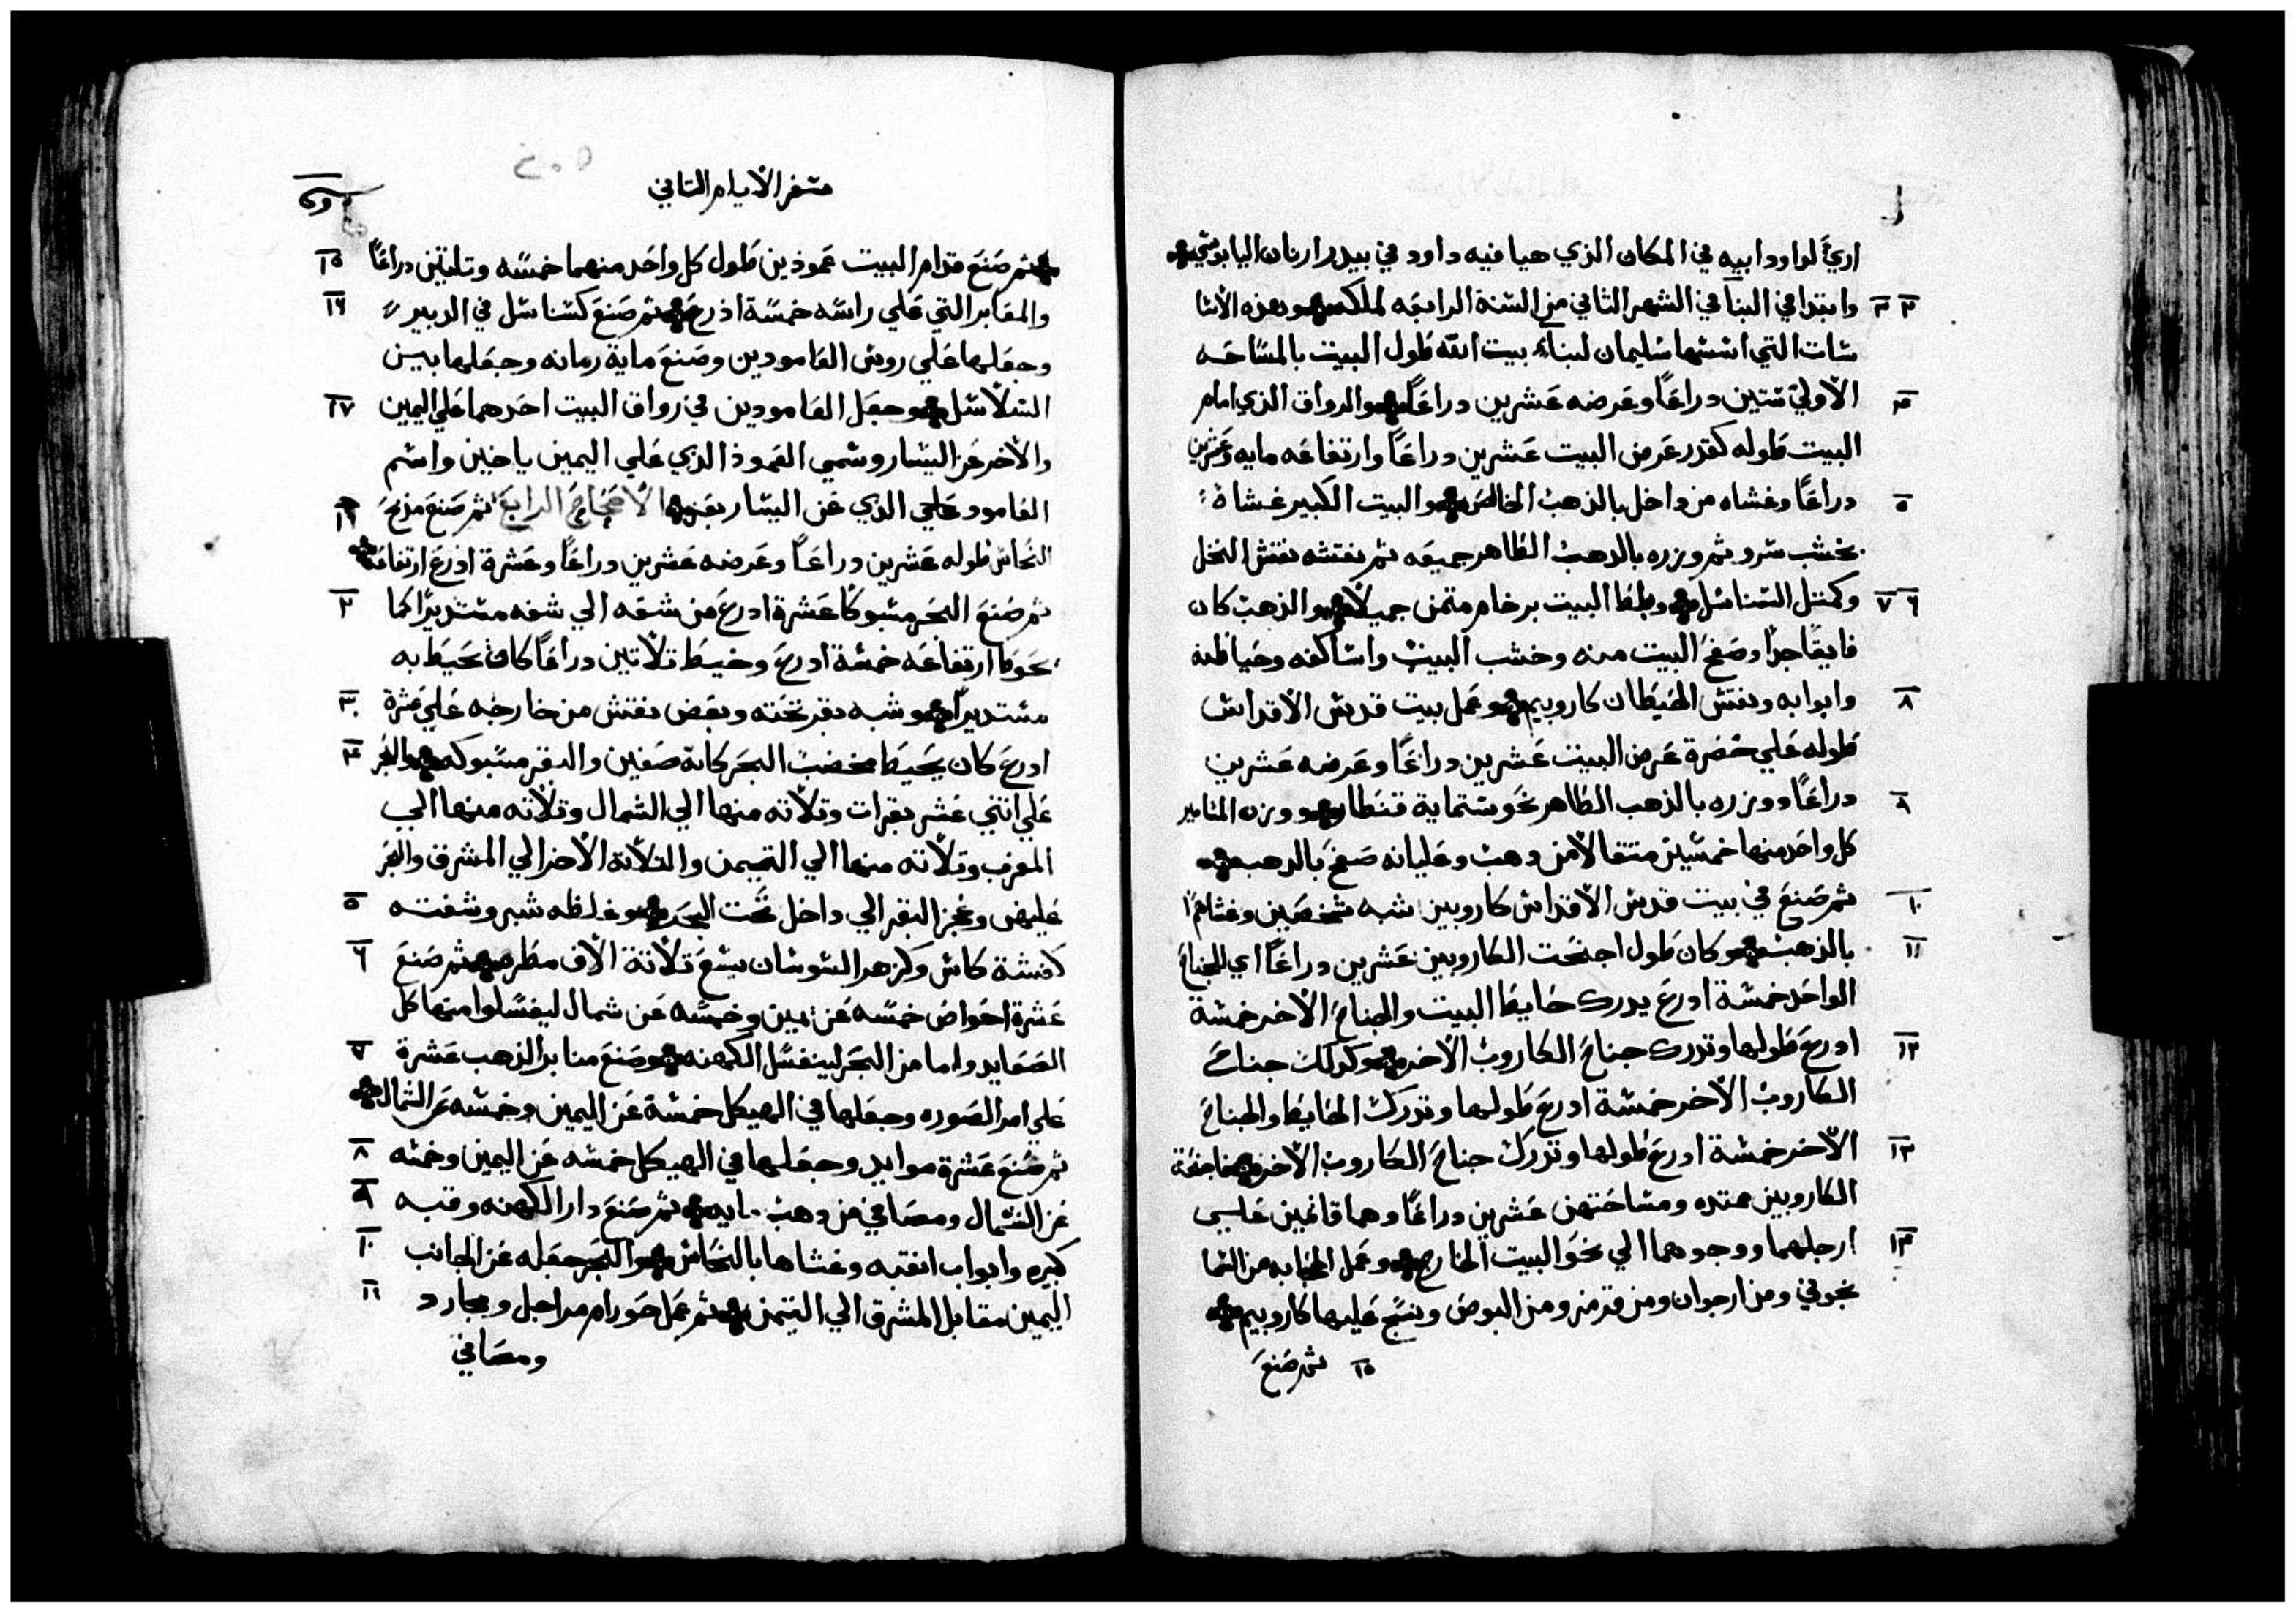 اري لداود ابيه في المكان الذي هيا فيه داود في بيدر ارنان اليابوسي
٢ ٣ وابتدا في البنا في الشهر الثاني من السنة الرابعه لملكه وهذه الاسا
سات التي اسسها سليمان لبناء بيت الله طول البيت بالمساحه
الاولي ستين دراعًا وعرضه عشرين دراعًا والرواق الذي امام
البيت طوله كقدر عرض البيت عشرين دراعًا وارتفاعه مايه وعشرين
٥ دراعًا وغشاه من داخل بالذهب الخالص والبيت الكبير غشاه
بخشب سرو ثم وزره بالدهب الطاهر جميعه ثم نقشه نقش النخل
٦ ٧ وكمثل السناسل وبلط البيت برخام مثمن جميلا والذهب كان
فايقًا جدًا وصفح البيت منه وخشب البيت واساكفه وحياطه
٨ وابوابه ونقش الحيطان كاروبيم وعمل بيت قدس الاقداس
طوله علي حضرة عرض البيت عشرين دراعًا وعرضه عشرين
٩ دراعًا ووزره بالذهب الطاهر نحو ستماية قنطار ووزن المسامير
كل واحد منها خمسين متقالا من دهب وعليانه صفح بالدهب
١٠ ثم صنع في بيت قدس الاقداس كاروبين شبه شخصين وغشاهم
١١ بالذهب وكان طول اجنحت الكاروبين عشرين دراعًا اي الجناح
الواحد خمسة ادرع يدرك حايط البيت والجناح الاخر خمسة
١٢ ادرع طولها وتدرك جناح الكاروب الاخر وكدلك جناح
الكاروب الاخر خمسة ادرع طولها وتدرك الحايط والجناح
١٣ الاخر خمسة ادرع طولها وتدرك جناح الكاروب الاخر فاجنحة
الكاروبين ممتده ومساحتهن عشرين دراعًا وهما قايمين علي
١٤ ارجلهما ووجوههما الي نحو البيت الخارج وعمل الحجابه من السما
نجوني ومن ارجوان ومن قرمز ومن البوص ونسج عليها كاروبيم
١٥ ثم صنع
سفر الايام التاني
ثم صنع قدام البيت عموذين طول كل واحد منهما خمسه وتلتين دراعًا ١٥
والمقابر التي علي راسه خمسة ادرع ثم صنع كسناسل في الدبير ١٦
وجعلها علي روس العامودين وصنع ماية رمانه وجعلها بين
السلاسل وجعل العامودين في رواق البيت احدهما علي اليمين ١٧
والاخر عن اليسار وسمي العموذ الذي علي اليمين ياخين واسم
العامود الذي عن اليسار بعز الاصحاح الرابع ثم صنع مذبح
النحاس طوله عشرين دراعًا وعرضه عشرين دراعًا وعشرة ادرع ارتفاعه
ثم صنع البحر مسبوكًا عشرة ادرع من شفه الي شفه مستديرًا كما ٢
نحوط ارتفاعه خمسة ادرع وخيط تلاتين دراعًا كان يحيط به
مستديرًا وشبه بقر تحته وبعض نقش من خارجه علي عشرة ٣
ادرع كان يحيط بحضن البحر كانه صفين والبقر مسبوكه والبحر ٤
علي اتني عشر بقرات وتلاته منها الي الشمال وتلاته منها الي
المغرب وتلاته منها الي التيمن والتلاتة الاخر الي المشرق والبحر
عليهن وعجز البقر الي داخل تحت البحر وغلظه شبر وشفته ٥
كشفة كاس وكزهر السوسان يسع تلاتة الاف مطر ثم صنع ٦
عشرة احواض خمسه عن يمين وخمسه عن شمال ليغسلوا منها كل
الصعايد واما من البحر ليغسل الكهنه وصنع منابر الذهب عشرة ٧
علي امر الصوره وجعلها في الهيكل خمسة عن اليمين وخمسه عن الشمال
ثم صنع عشرة موايد وجعلها في الهيكل خمسه عن اليمين وخمسه ٨
عن الشمال ومصافي من دهب مايه ثم صنع دار الكهنه وقبه ٩
كبيره وابواب القبه وغشاها بالنحاس والبحر جعله عن الجانب ١٠
اليمين مقابل المشرق الي التيمن ثم عمل حورام مراجل ومجارد ١١
ومصافي